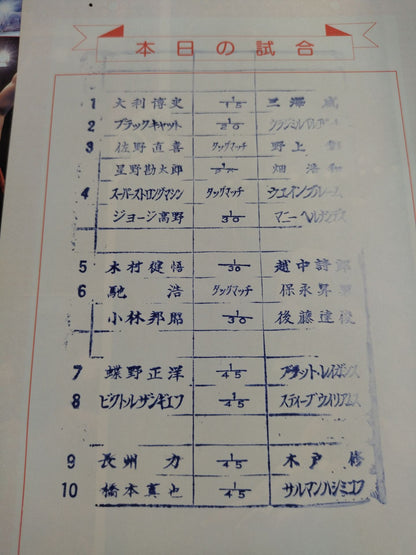 本日の試合
1 大利博史 1/15 三澤 威
2 ブラックキャット 1/20
3 佐野直喜 タッグマッチ 野上 彰
星野勘太郎 畑 浩和
4 スーパーストロングマシン タッグマッチ ウエインブルーム
ジョージ高野 1/30 マニー・ヘルナンデス
5 木村健悟 1/30 越中詩郎
6 馳 浩 タッグマッチ 保永昇男
小林邦昭 1/30 後藤達俊
7 蝶野正洋 1/45 ブラット・レイガンス
8 ビクトルザンギエフ 1/45 スティーブウイリアムス
9 長州 力 1/45 木戸 修
10 橋本真也 1/45 サルマンハシミコフ